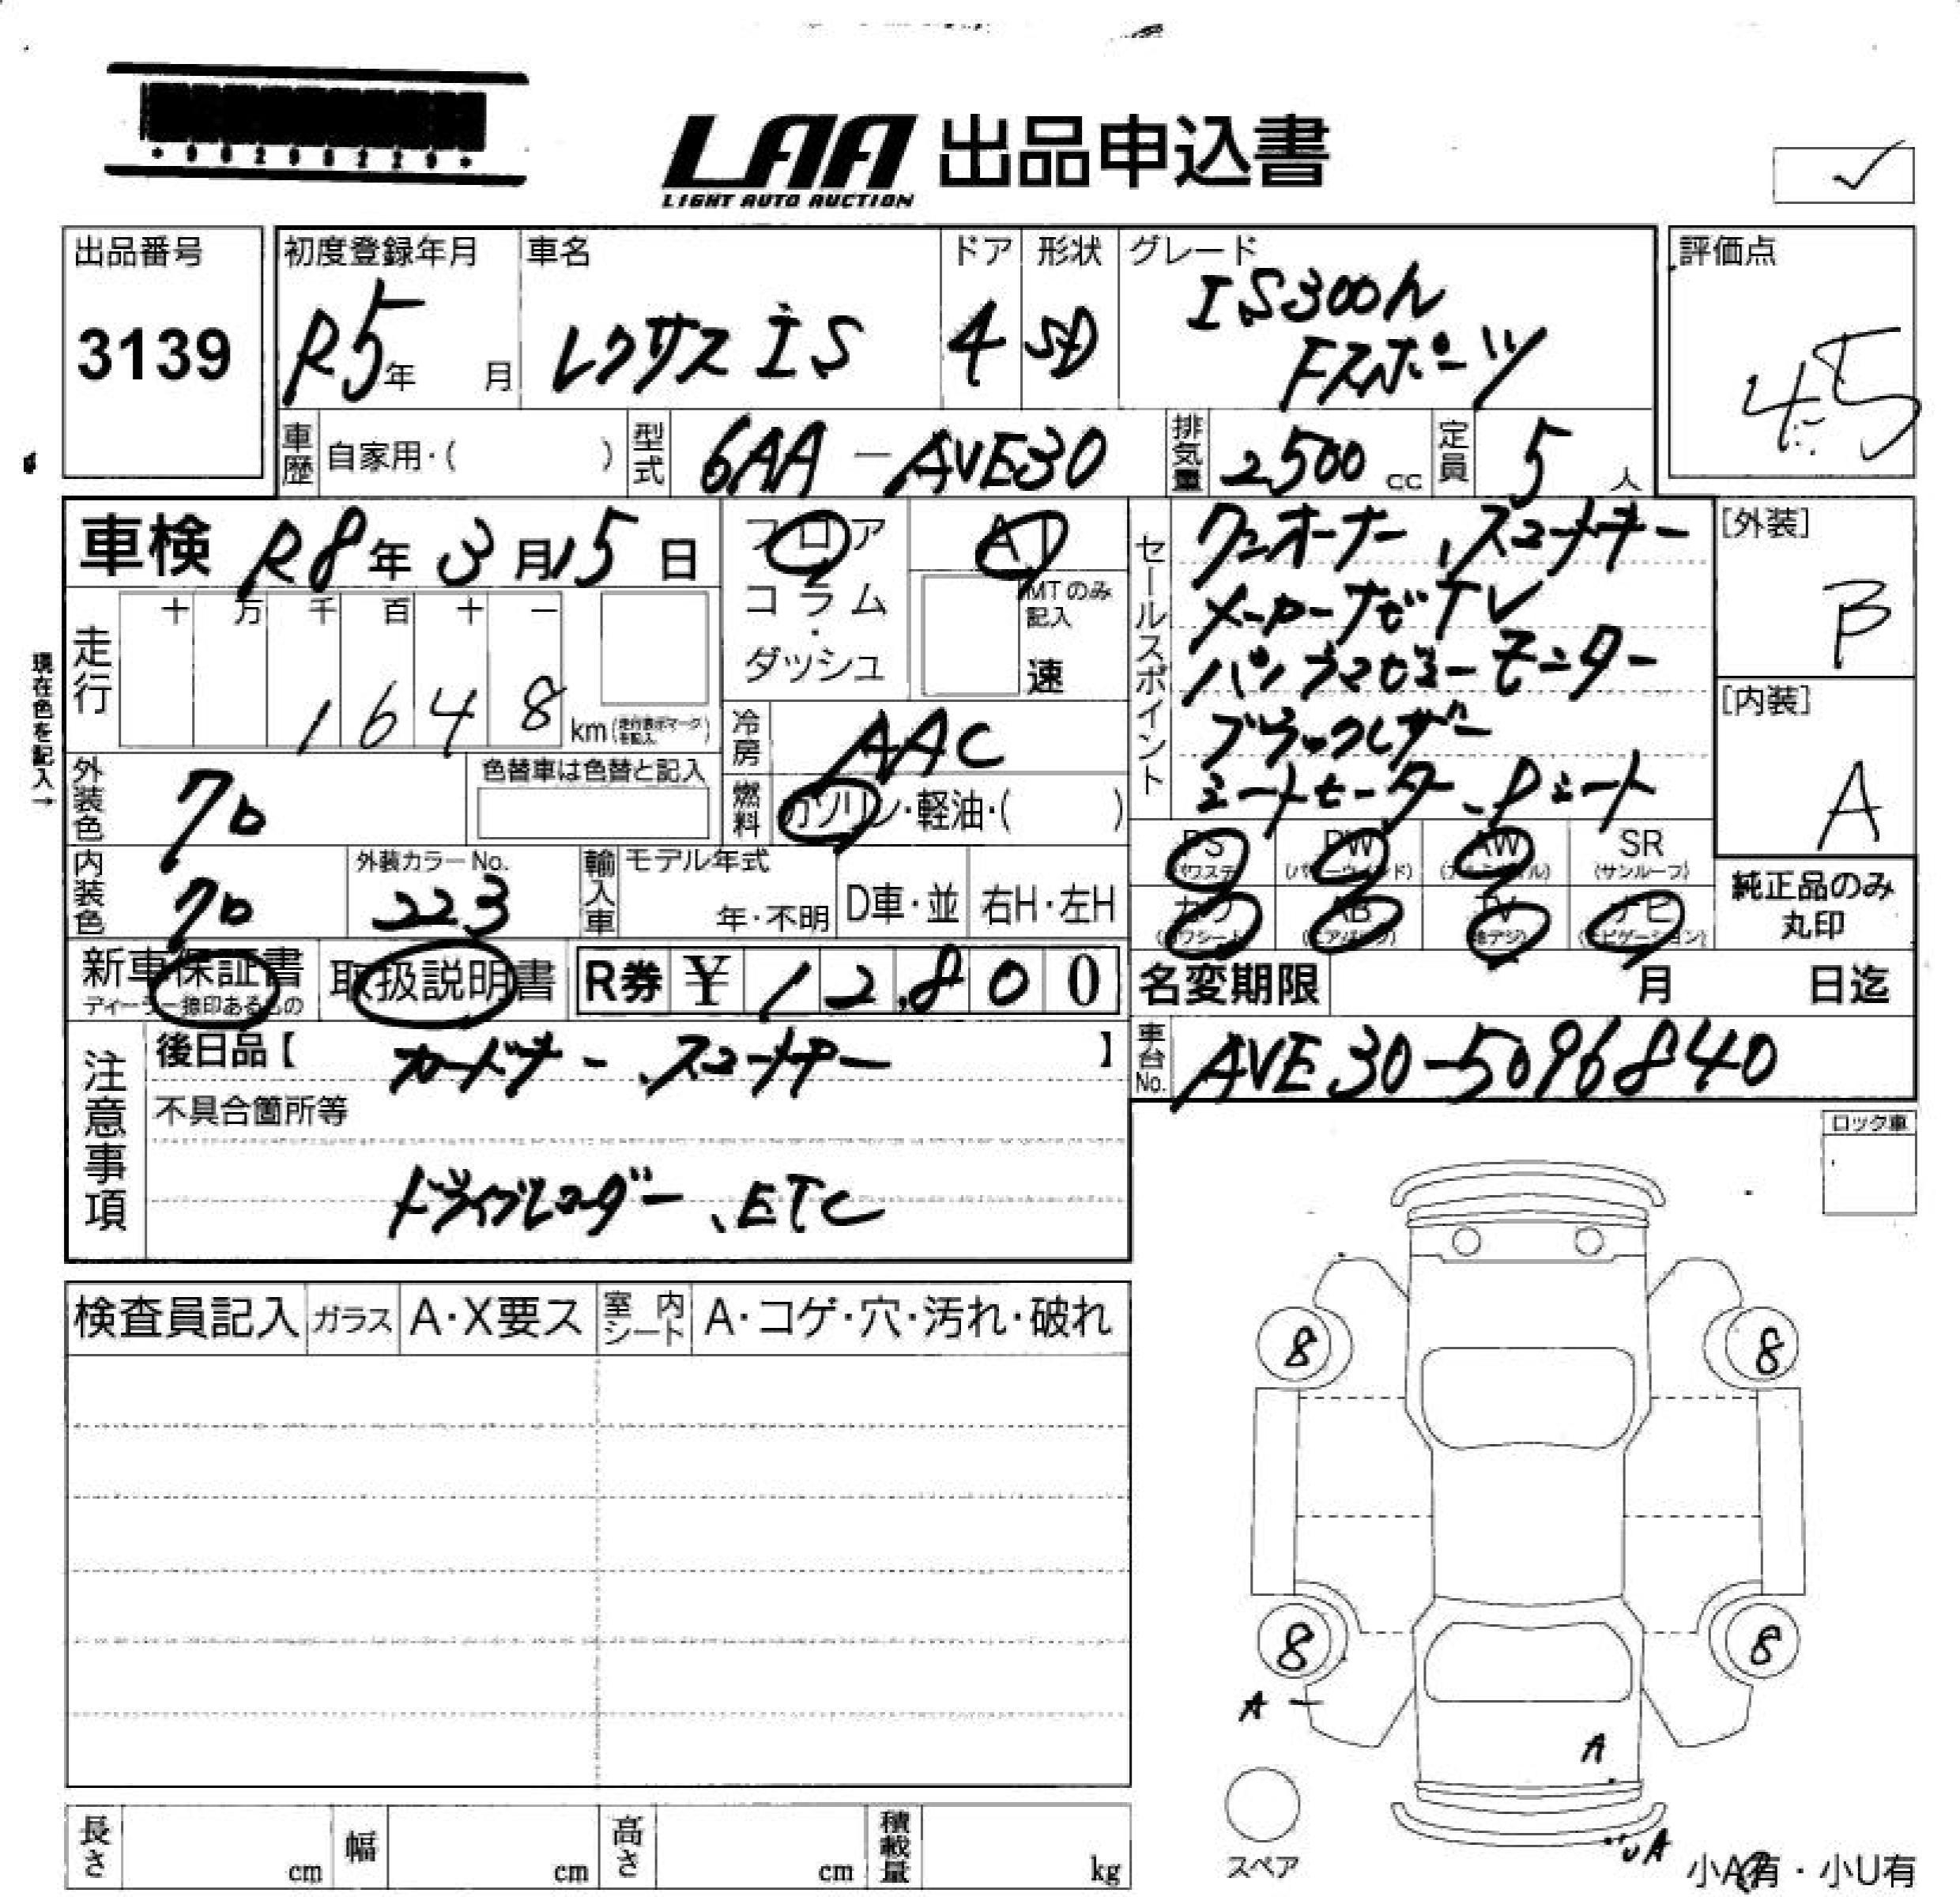 LAA 出品申込書
LIGHT AUTO AUCTION
✓
出品番号
3139
初度登録年月
R5年 月
車名
レクサス IS
ドア
4
形状
SD
グレード
IS300h
Fスポーツ
評価点
4.5
車歴 自家用・( )
型式 6AA-AVE30
排気量 2500 cc
定員 5 人
車検 R8年3月15日
フロア
コラム
・
ダッシュ
AT
MTのみ記入
速
走行
十 万 千 百 十 一
1 6 4 8 km (走行表示マークを記入)
現在色を記入→
冷房 AAC
燃料 ガソリン・軽油・( )
外装色 クロ
色替車は色替と記入
内装色 クロ
外装カラーNo.
223
輸入車
モデル年式
年・不明
D車・並
右H・左H
セールスポイント
ワンオーナー、スコナキー
メーカーナビTV
パノラマビューモニター
ブラックレザー
シートヒーター、Pシート
[外装]
B
[内装]
A
PS (パワステ)
PW (パワーウインド)
AW (アルミホイル)
SR (サンルーフ)
カワ (カワシート)
AB (エアバック)
TV (地デジ)
ナビ (ナビゲーション)
純正品のみ
丸印
新車保証書
ディーラー捺印あるもの
取扱説明書
R券 ¥ 12,800
名変期限 月 日迄
注意事項
後日品【 カードキー、スコナキー 】
車台No. AVE30-5096840
不具合箇所等
ドライブレコーダー、ETC
ロック車
検査員記入
ガラス A・X要ス
室内シート A・コゲ・穴・汚れ・破れ
8
8
8
8
A
A
UA
スペア
小A有・小U有
長さ cm
幅 cm
高さ cm
積載量 kg